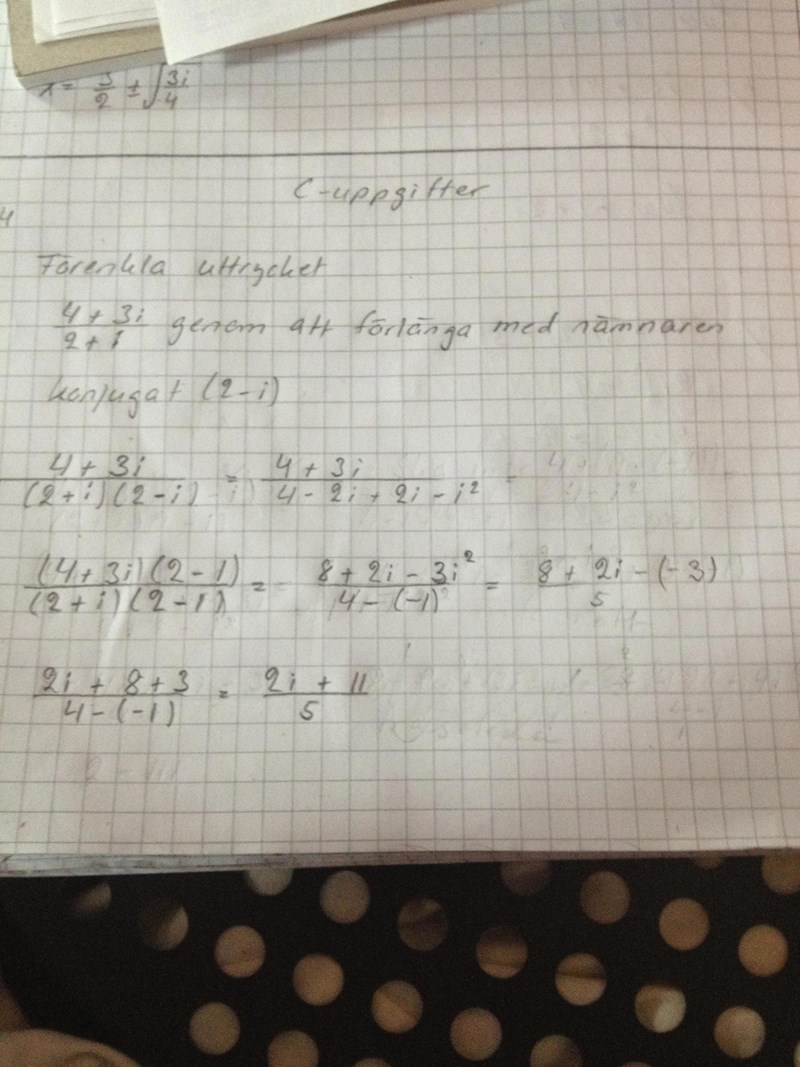 x = 3/2 ± √(3i/4)
C-uppgifter
4
Förenkla uttrycket
(4 + 3i)/(2 + i) genom att förlänga med nämnaren
konjugat (2-i)
(4 + 3i)/((2+i)(2-i)) = (4 + 3i)/(4 - 2i + 2i - i²) =
((4+3i)(2-1))/((2+i)(2-1)) = (8 + 2i - 3i²)/(4-(-1)) = (8 + 2i - (-3))/5
(2i + 8 + 3)/(4-(-1)) = (2i + 11)/5